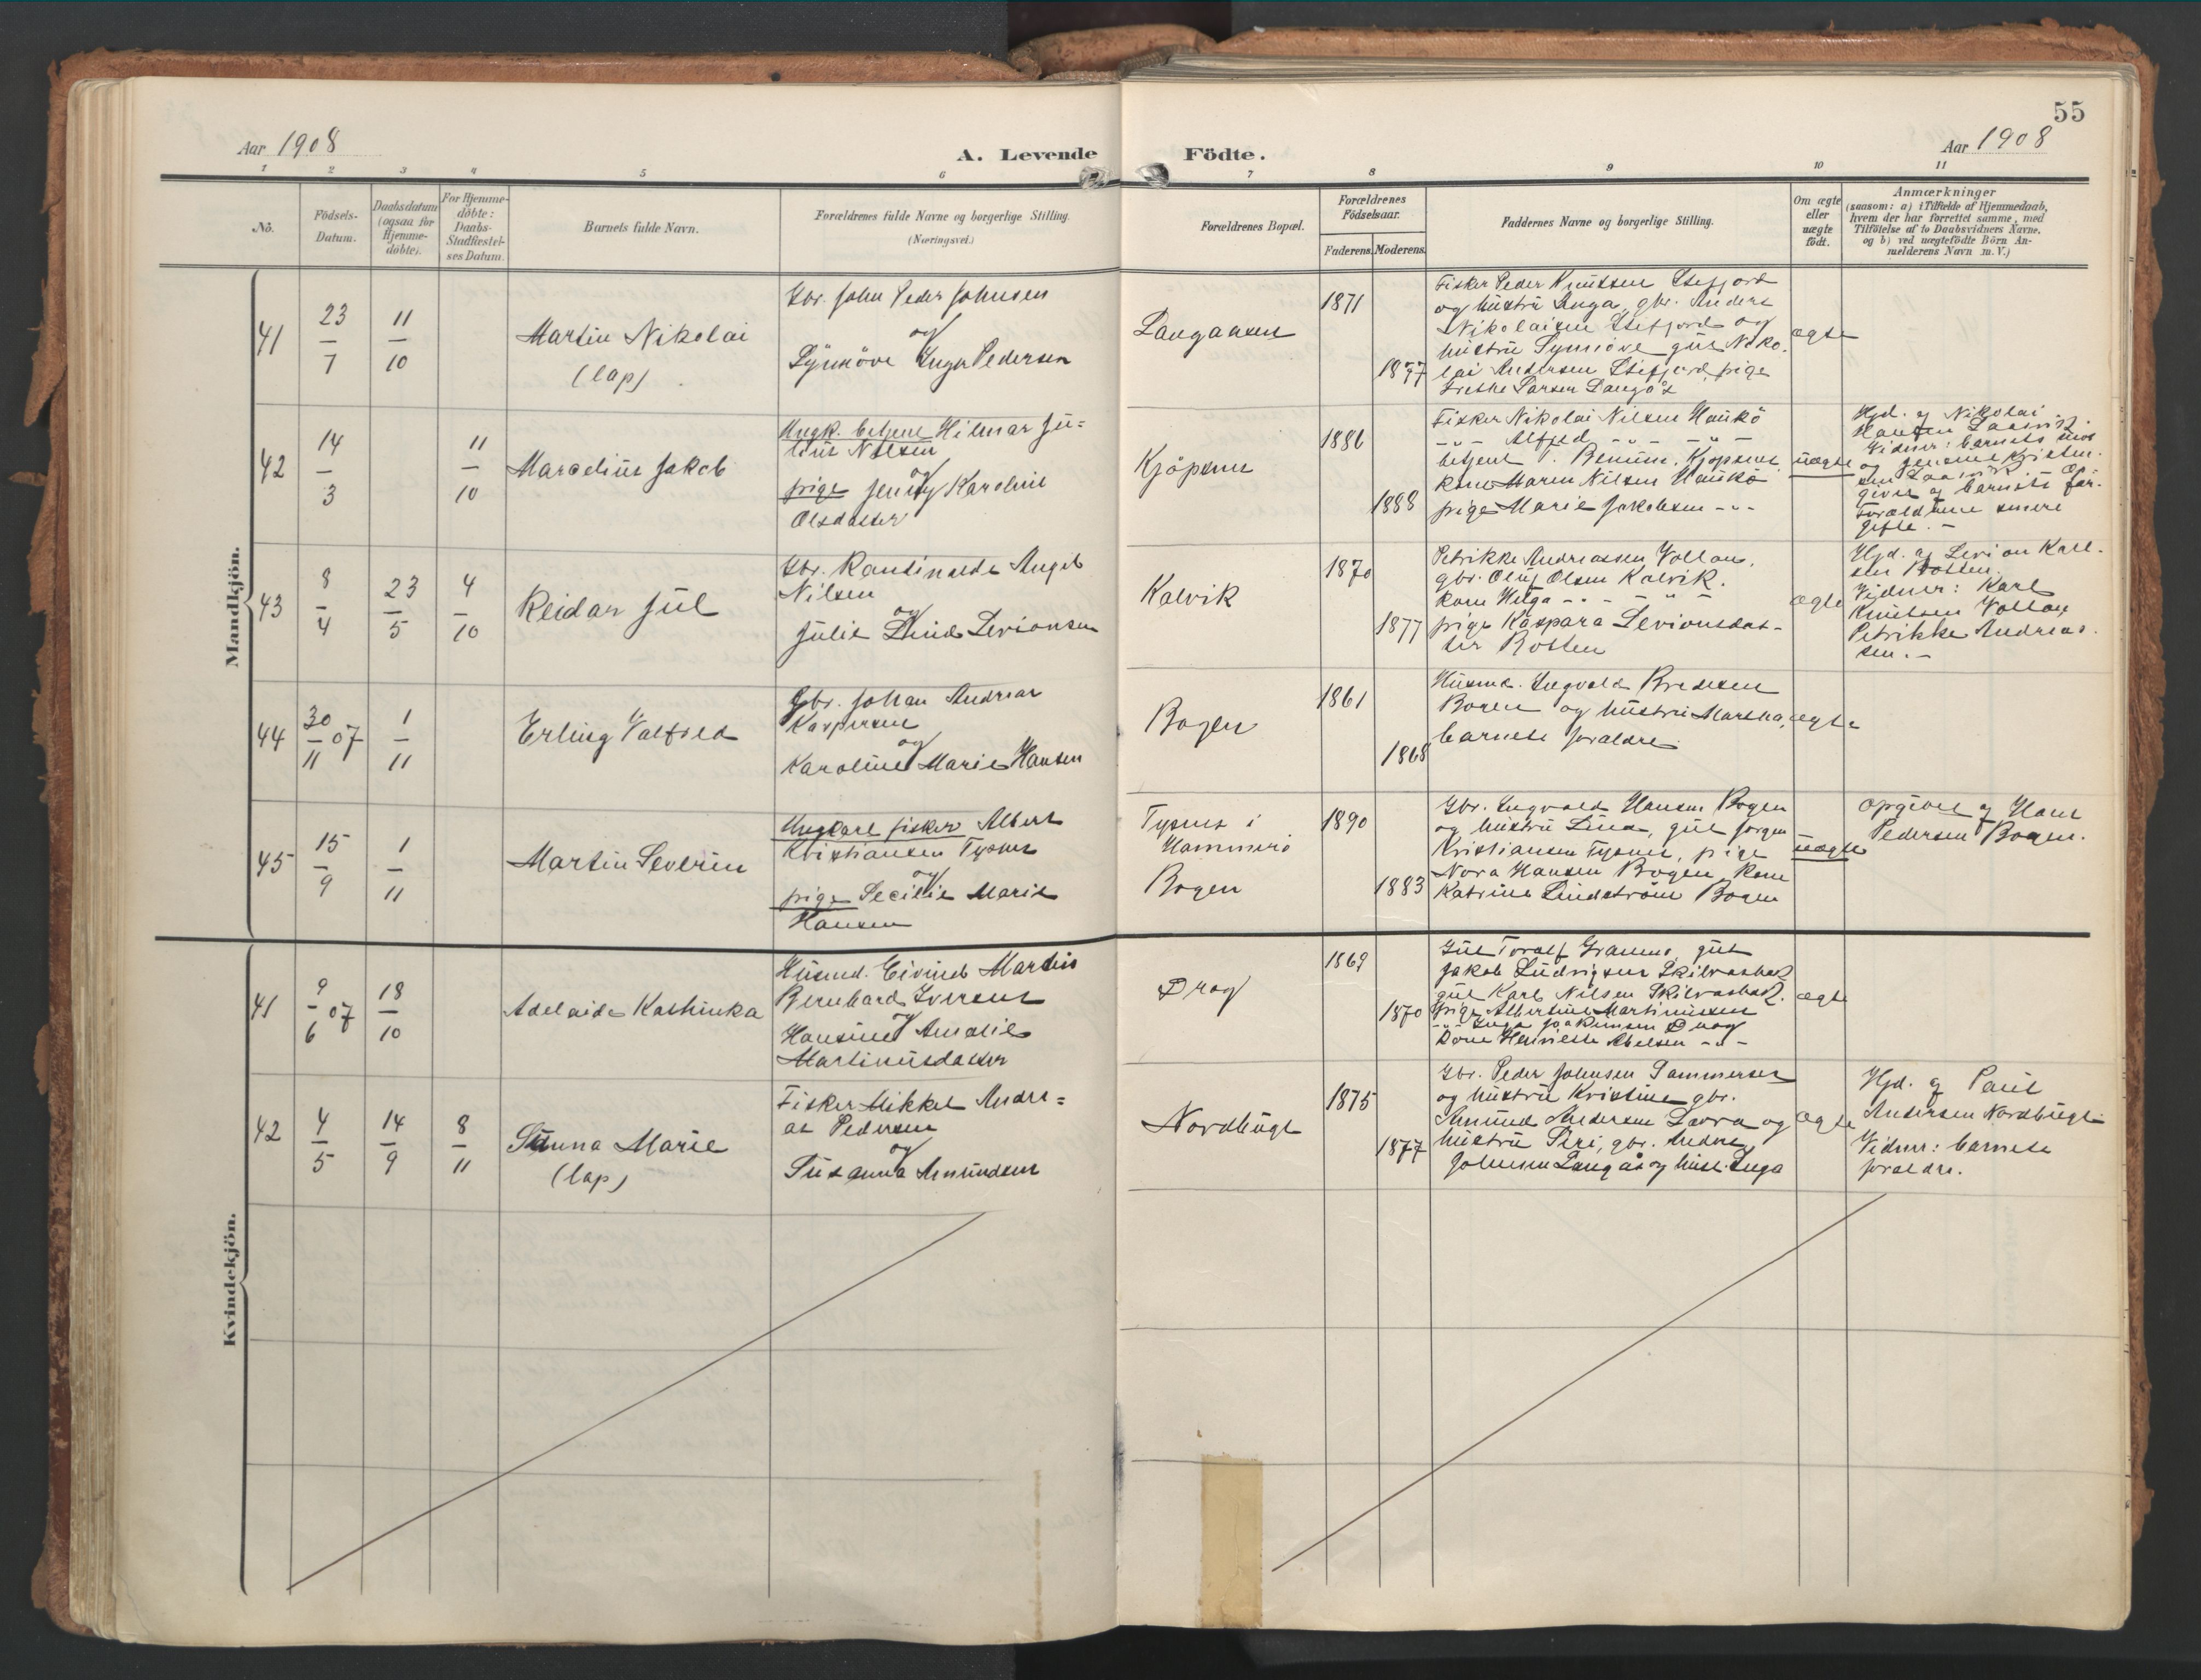 55
Aar 1908
A. Levende Födte.
Aar 1908
1 2 3 4 5 6 7 8 9 10 11
No.
Födsels-
Datum.
Daabsdatum
(ogsaa for
Hjemme-
döbte).
For Hjemme-
döbte:
Daabs-
Stadfæstel-
ses Datum.
Barnets fulde Navn.
Forældrenes fulde Navne og borgerlige Stilling.
(Næringsvei.)
Forældrenes Bopæl.
Forældrenes
Födselsaar.
Faderens. Moderens.
Faddernes Navne og borgerlige Stilling.
Om ægte
eller
uægte
födt.
Anmærkninger
(saasom: a) i Tilfælde af Hjemmedaab,
hvem der har forrettet samme, med
Tilföielse af to Daabsvidners Navne,
og b) ved uægtefödte Börn An-
melderens Navn m. V.)
Mandkjön.
41
23
7
11
10
Martin Nikolai
(lap)
Gbr. John Peder Johnsen
og
Synnöve Inga Pedersen
Langaasen
1871
1877
Fisker Peder Knutsen Stefjord
og hustru Inga, gbr. Anders
Nikolaisen Stefjord og
hustru Synnöve, gut Niko-
lai Andersen Stefjord, pige
Grethe Larsen Langås
ægte
42
14
3
11
10
Marcelius Jakob
Ungk. betjent Hilmar Ju=
lius Nilsen
og
pige Jenny Karoline
Olsdatter
Kjöpsnes
1886
1888
Fisker Nikolai Nilsen Haukö
-"- Alfred -"- -"-
betjent Kjöpsnes
kone Maren Nilsen Haukö
pige Marie Jakobsen -"-
uægte
Hjd. af Nikolai
Hansen
Vidner: barnets mor
og Kristen-
sen
giver af barnets far.
Forældrene senere
gifte. -
43
8
4
23
5
4
10
Reidar Jul
Gbr. Rantinalde Angel
Nilsen
og
Julie Levionsen
Kalvik
1870
1877
Petrikke Andreassen Vollan,
gbr. Oluf Olsen Kalvik.
kone Helga -"- -"-
pige Kaspara Levionsdat-
ter Rotten
ægte
Hjd. af Levion Karl-
sen Rotten.
Vidner: Karl
Knutsen Vollan
Petrikke Andreas-
sen. -
44
30
11
07
1
11
Erling Valfred
Gbr. Johan Andreas
Kaspersen
og
Karoline Marie Hansen
Bogen
1861
1868
Husmd. Ingvald Bredesen
Bogen og hustru Martha,
barnets forældre
ægte
45
15
9
1
11
Martin Severin
Ungkarl fisker Albert
Kristiansen Tysnes
og
pige Secilie Marie
Hansen
Tysnes i
Hammerö
Bogen
1890
1883
Gbr. Ingvald Hansen Bogen
og hustru Lina, gut Jørgen
Kristiansen Tysnes, pige
Nora Hansen Bogen, kone
Katrine Lindström Bogen
uægte
opgivet af Hans
Pedersen Bogen.
Kvindekjön.
41
9
6
07
18
10
Adelaide Kathinka
Husmd. Eivind Martin
Bernhard Iversen
og
Hansine Amalie
Martinusdatter
Drag
1869
1870
Gut Toralf Gramme, gut
Jakob Ludvigsen Skilvasbak
gut Karl Nilsen Skilvasbak.
pige Albertine Martinussen
-"- Inga Joakimsen Drag
kone Henriette Abelsen -"-
ægte
42
4
5
14
9
8
11
Sunna Marie
(lap)
Fisker Mikkel Andre=
as Pedersen
og
Susanna Amundsen
Nordbugt
1875
1877
Gbr. Peder Johnsen Tammernes
og hustru Kristine gbr.
Amund Andersen Lavra og
hustru Siri, gbr. Anders
Johnsen Langås og hust. Inga
ægte
Hjd. af Paul
Andersen Nordbugt
Vidner: barnets
forældre.